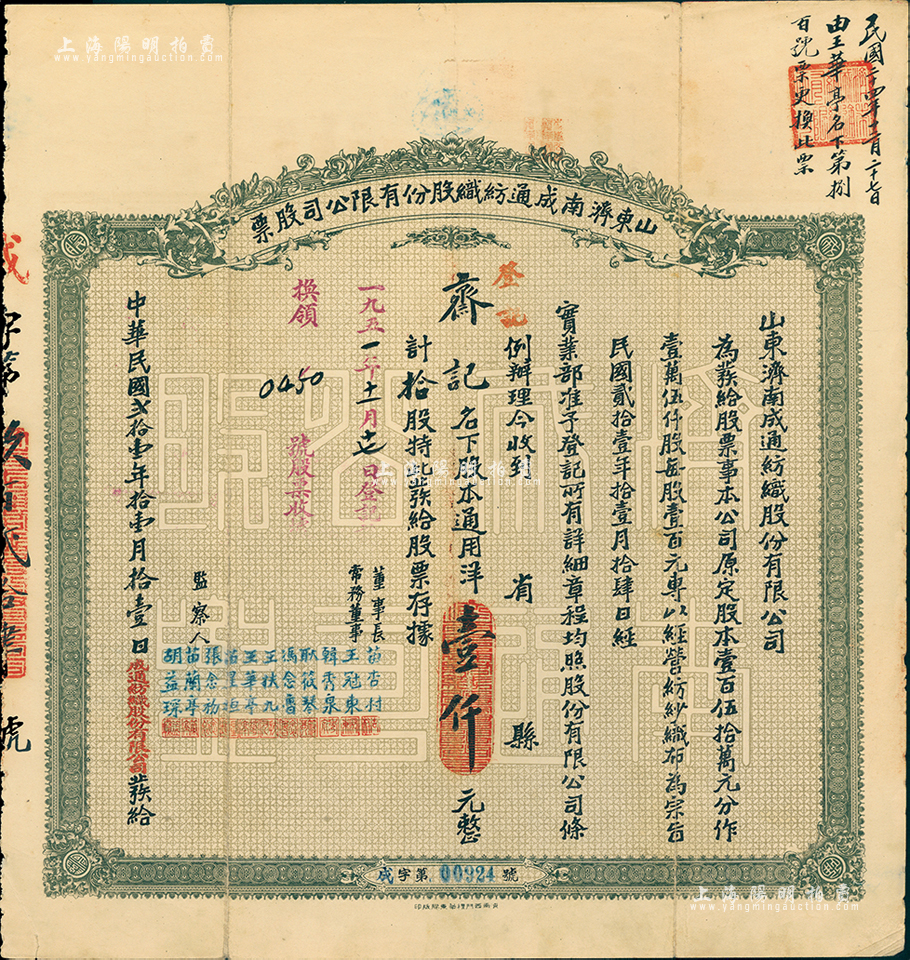 民國二十四年十一月二十七日
由王華亭名下第捌
百號票更換此票
山東濟南成通紡織股份有限公司股票
山東濟南成通紡織股份有限公司
為發給股票事本公司原定股本壹百伍拾萬元分作
壹萬伍仟股每股壹百元專以經營紡紗織布為宗旨
民國貳拾壹年拾壹月拾肆日經
實業部准予登記所有詳細章程均照股份有限公司條
例辦理今收到 省 縣
登記
齋記名下股本通用洋壹仟元整
計拾股特此發給股票存據
一九五一年十一月 日登記
換領 0450 號股票收
董事長
常務董事
苗杏村
王冠東
韓秀泉
耿筱琴
馮念魯
王扶九
王華亭
苗星垣
張念初
監察人
苗蘭亭
胡益琛
中華民國貳拾壹年拾壹月拾壹日成通紡織股份有限公司發給
成字第 號
成字第 00924 號
上海陽明拍賣
www.yangmingauction.com
上海陽明拍賣
www.yangmingauction.com
上海陽明拍賣
www.yangmingauction.com